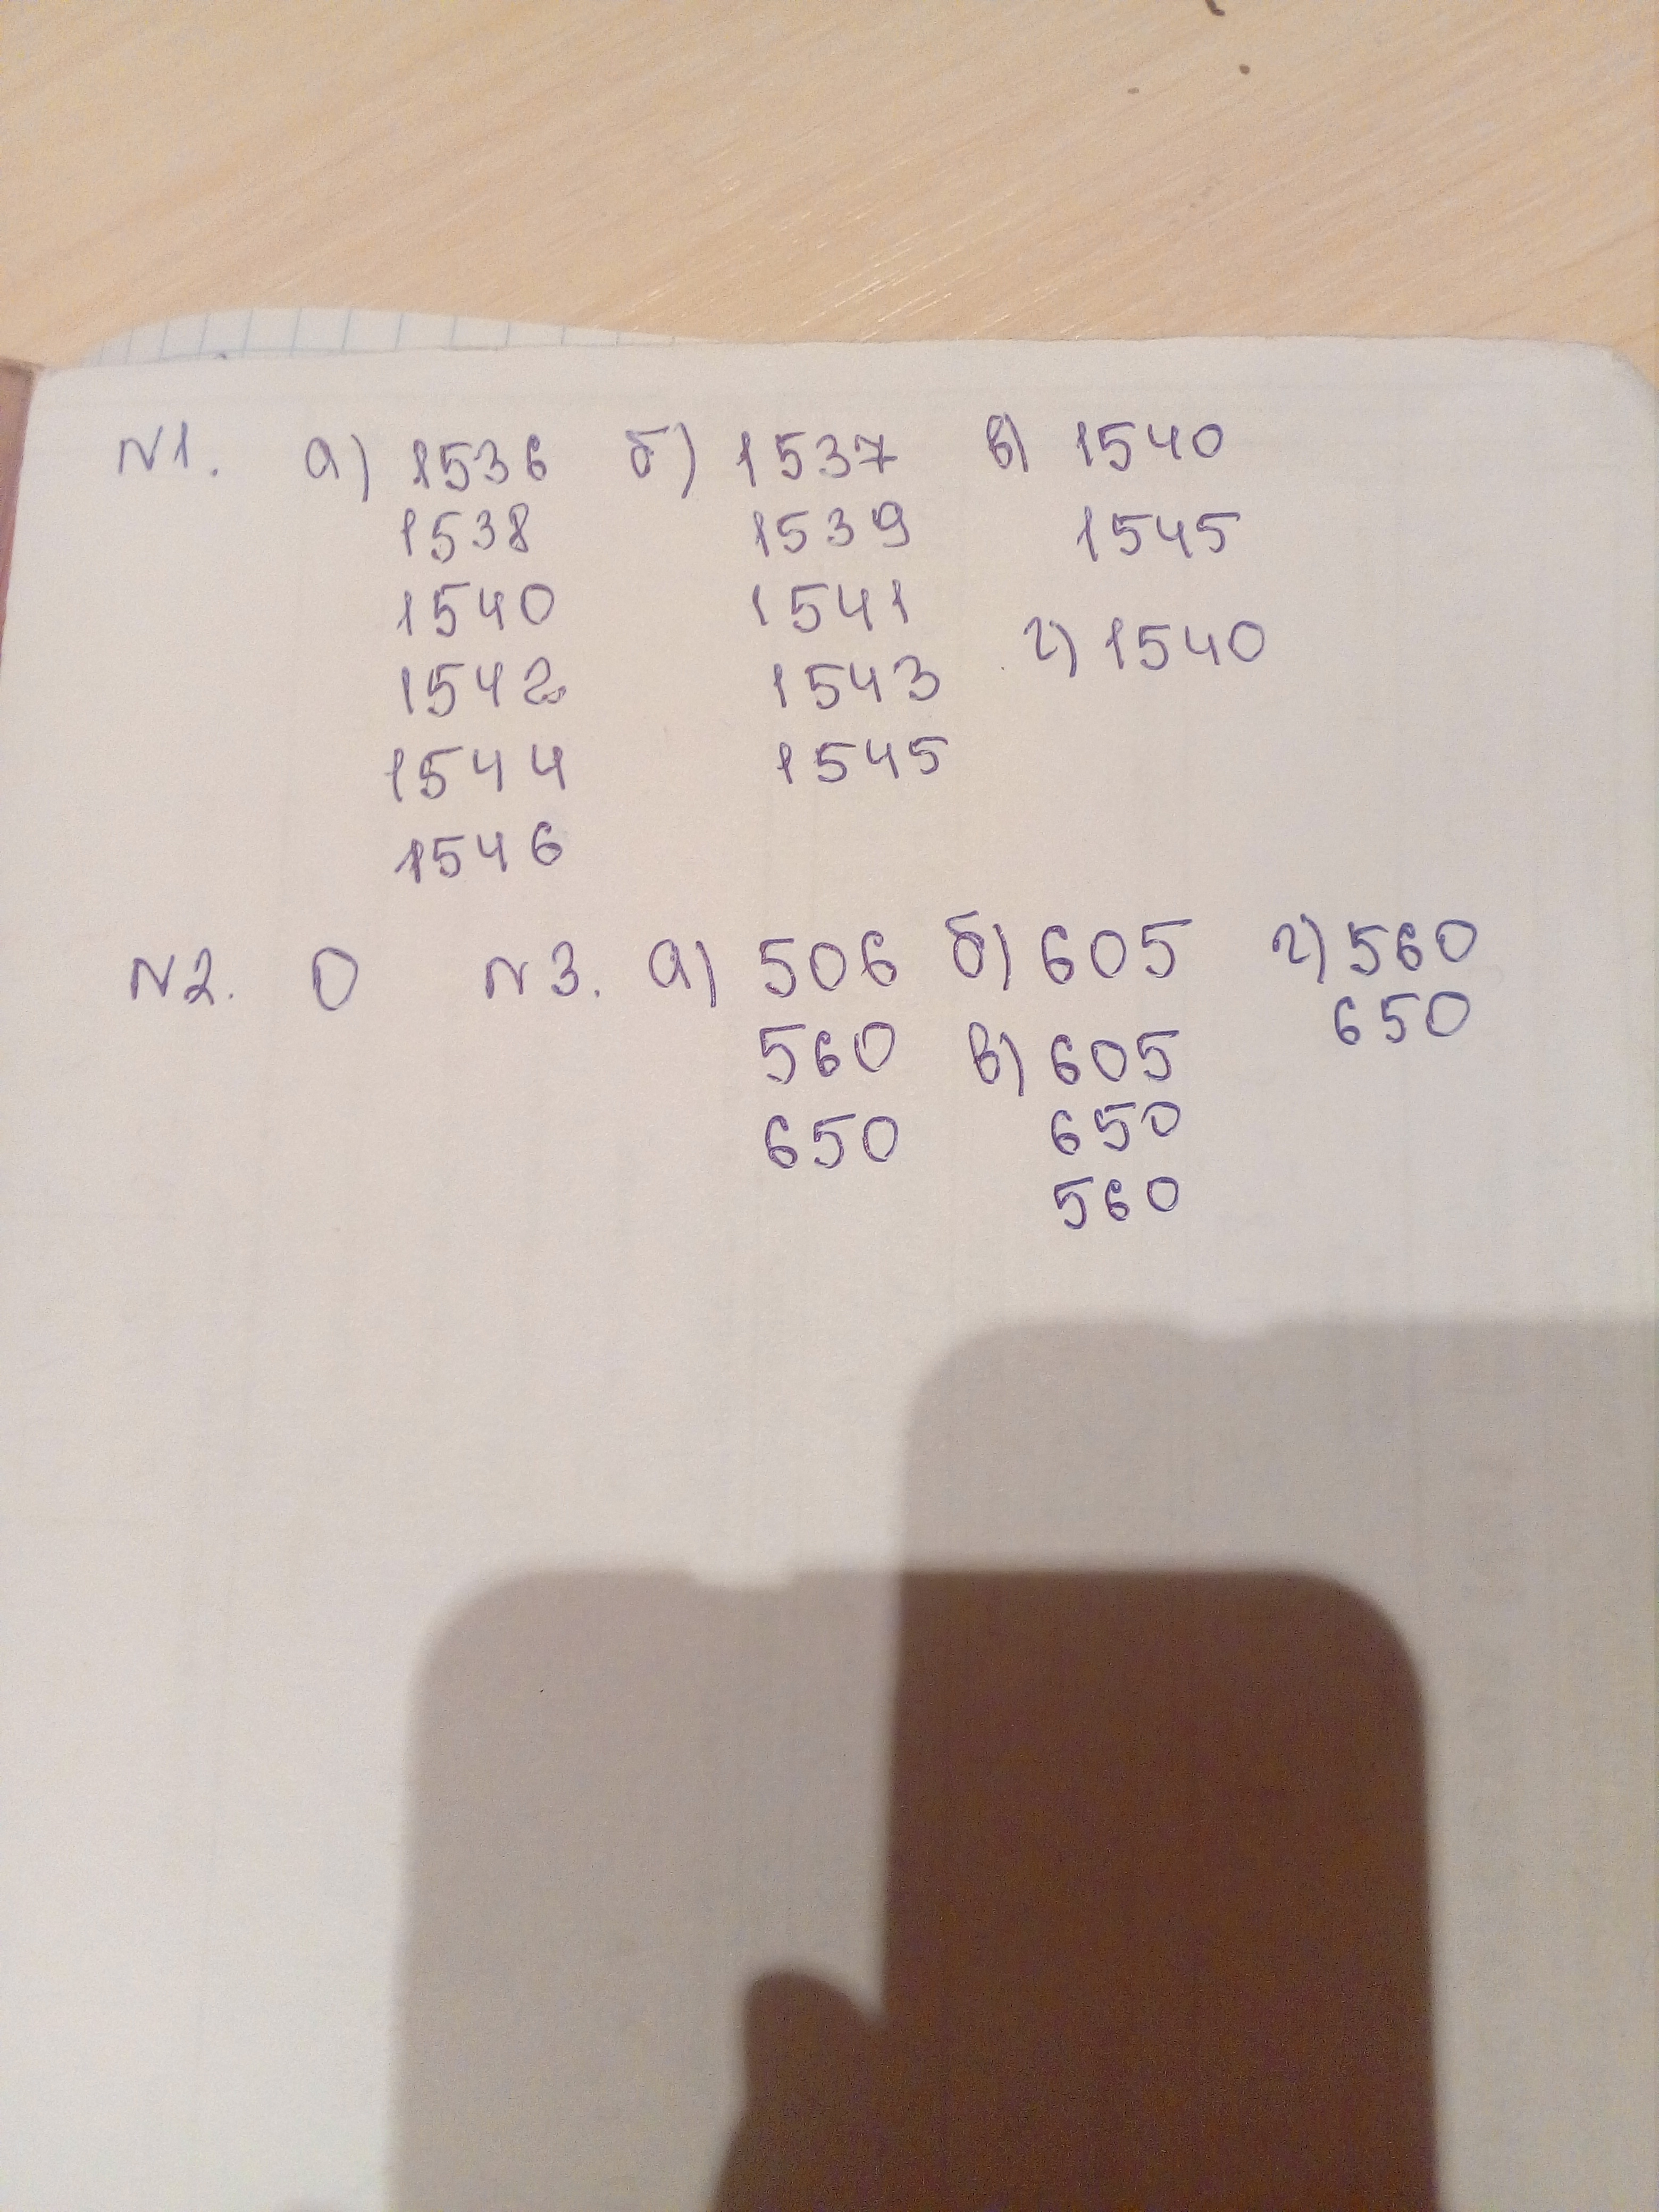 N1. а) 1536 б) 1537 в) 1540
1538 1539 1545
1540 1541 г) 1540
1542 1543
1544 1545
1546
N2. 0 N3. а) 506 б) 605 г) 560
560 в) 605 650
650 650
560